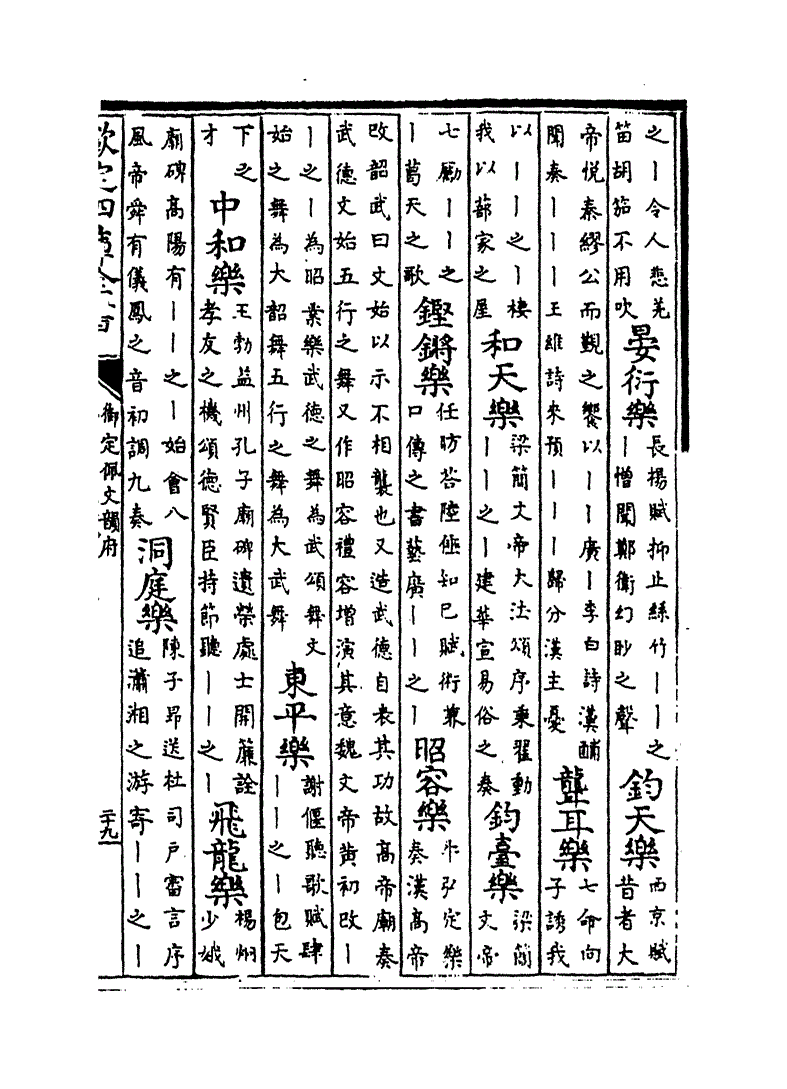 之｜令人悲羌
笛胡笳不用吹
晏衍樂
長楊賦抑止絲竹｜｜之
｜憎聞鄭衛幻眇之聲
鈞天樂
西京賦
昔者大
帝悦秦繆公而覲之饗以｜｜廣｜李白詩漢酺
聞奏｜｜｜王維詩來預｜｜｜歸分漢主憂
聾耳樂
七命向
子誘我
以｜｜之｜棲
我以蔀家之屋
和天樂
梁簡文帝大法頌序秉翟動
｜｜之｜建華宣易俗之奏
鈞臺樂
梁簡
文帝
七勵｜｜之
｜葛天之歌
鏗鏘樂
任昉答陸倕知己賦術兼
口傳之書藝廣｜｜之｜
昭容樂
牛弘定樂
奏漢高帝
改韶武曰文始以示不相襲也又造武德自表其功故高帝廟奏
武德文始五行之舞又作昭容禮容增演其意魏文帝黄初改｜
｜之｜為昭業樂武德之舞為武頌舞文
始之舞為大韶舞五行之舞為大武舞
東平樂
謝偃聽歌賦肆
｜｜之｜包天
下之
才
中和樂
王勃益州孔子廟碑遺榮處士開簾詮
孝友之機頌德賢臣持節聽｜｜之｜
飛龍樂
楊炯
少姨
廟碑高陽有｜｜之｜始會八
風帝舜有儀鳳之音初調九奏
洞庭樂
陳子昂送杜司户審言序
追瀟湘之游寄｜｜之｜
欽定四庫全書
御定佩文韻府
二十九